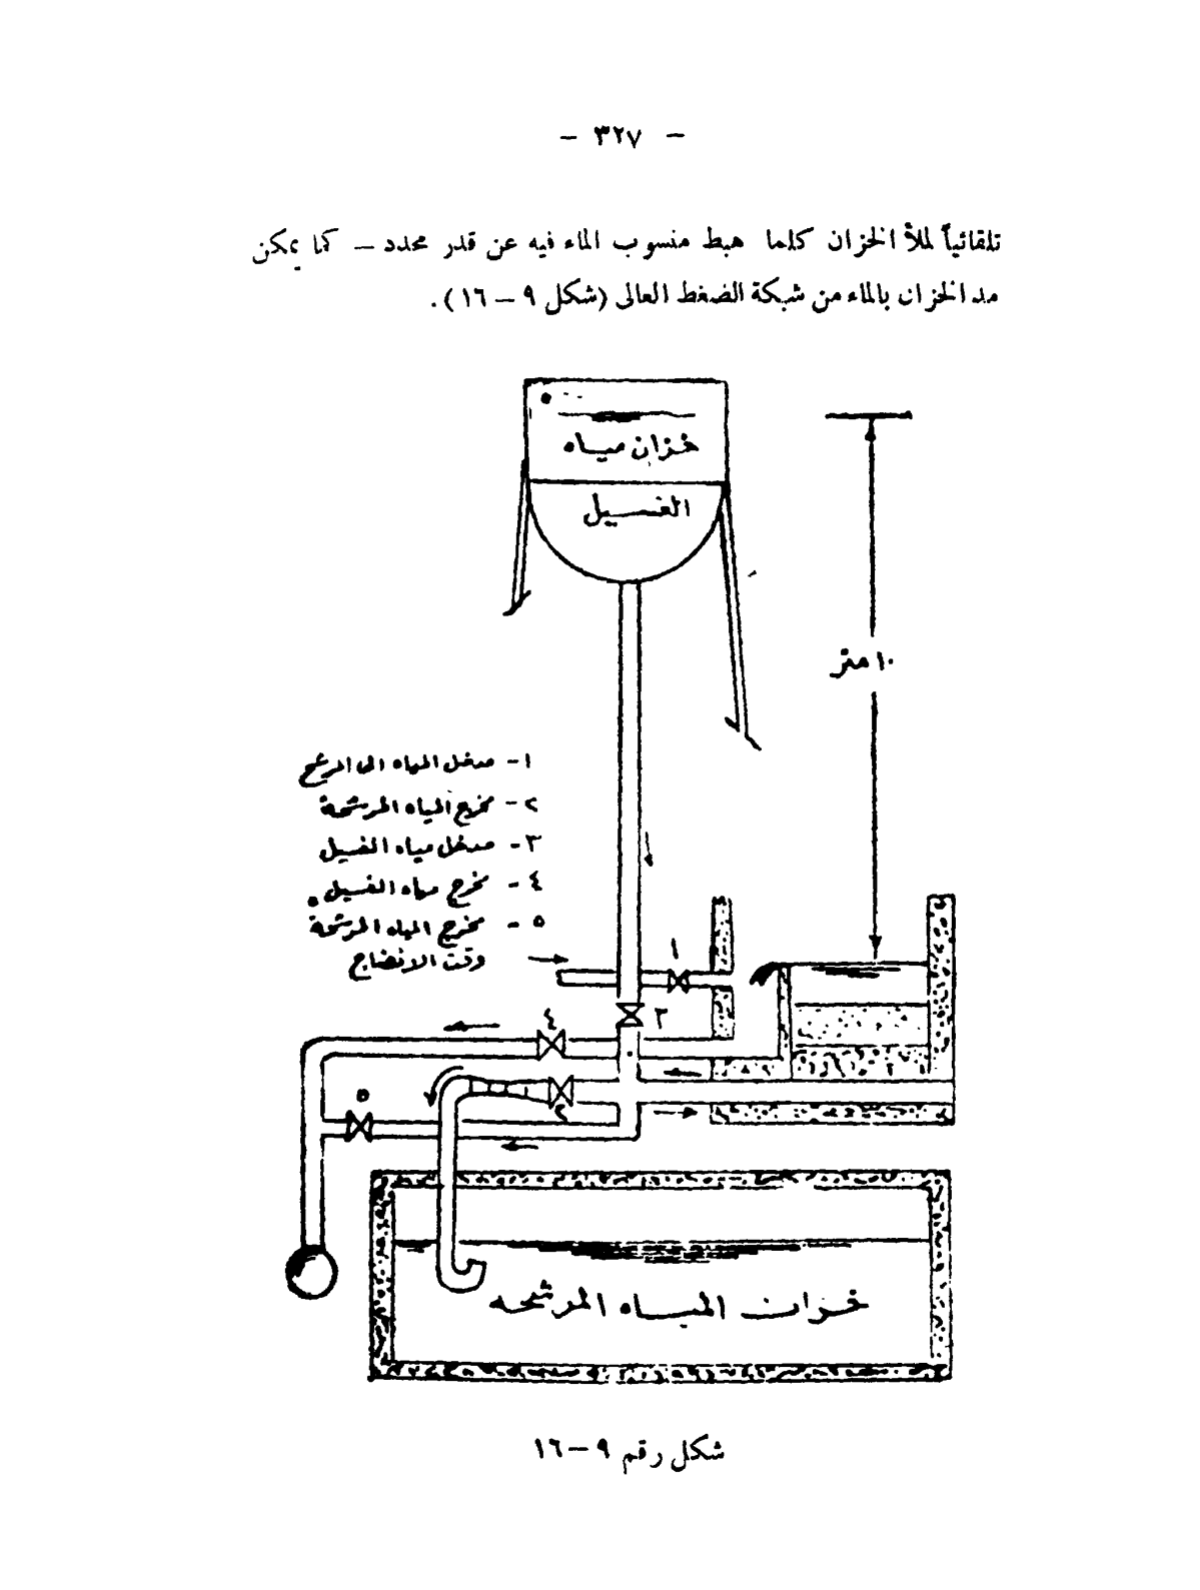 – ٣٢٧ –
تلقائياً لملأ الخزان كلما هبط منسوب الماء فيه عن قدر محدد – كما يمكن
مد الخزان بالماء من شبكة الضغط العالى (شكل ٩ – ١٦).
خزان مياه
الغسيل
١٠ متر
١- مدخل المياه الى المرشح
٢- مخرج المياه المرشحة
٣- مدخل مياه الغسيل
٤- مخرج مياه الغسيل.
٥- مخرج المياه المرشحة
وقت الانضاج
١
٣
٤
٥
٢
خزان المياه المرشحه
شكل رقم ٩–١٦